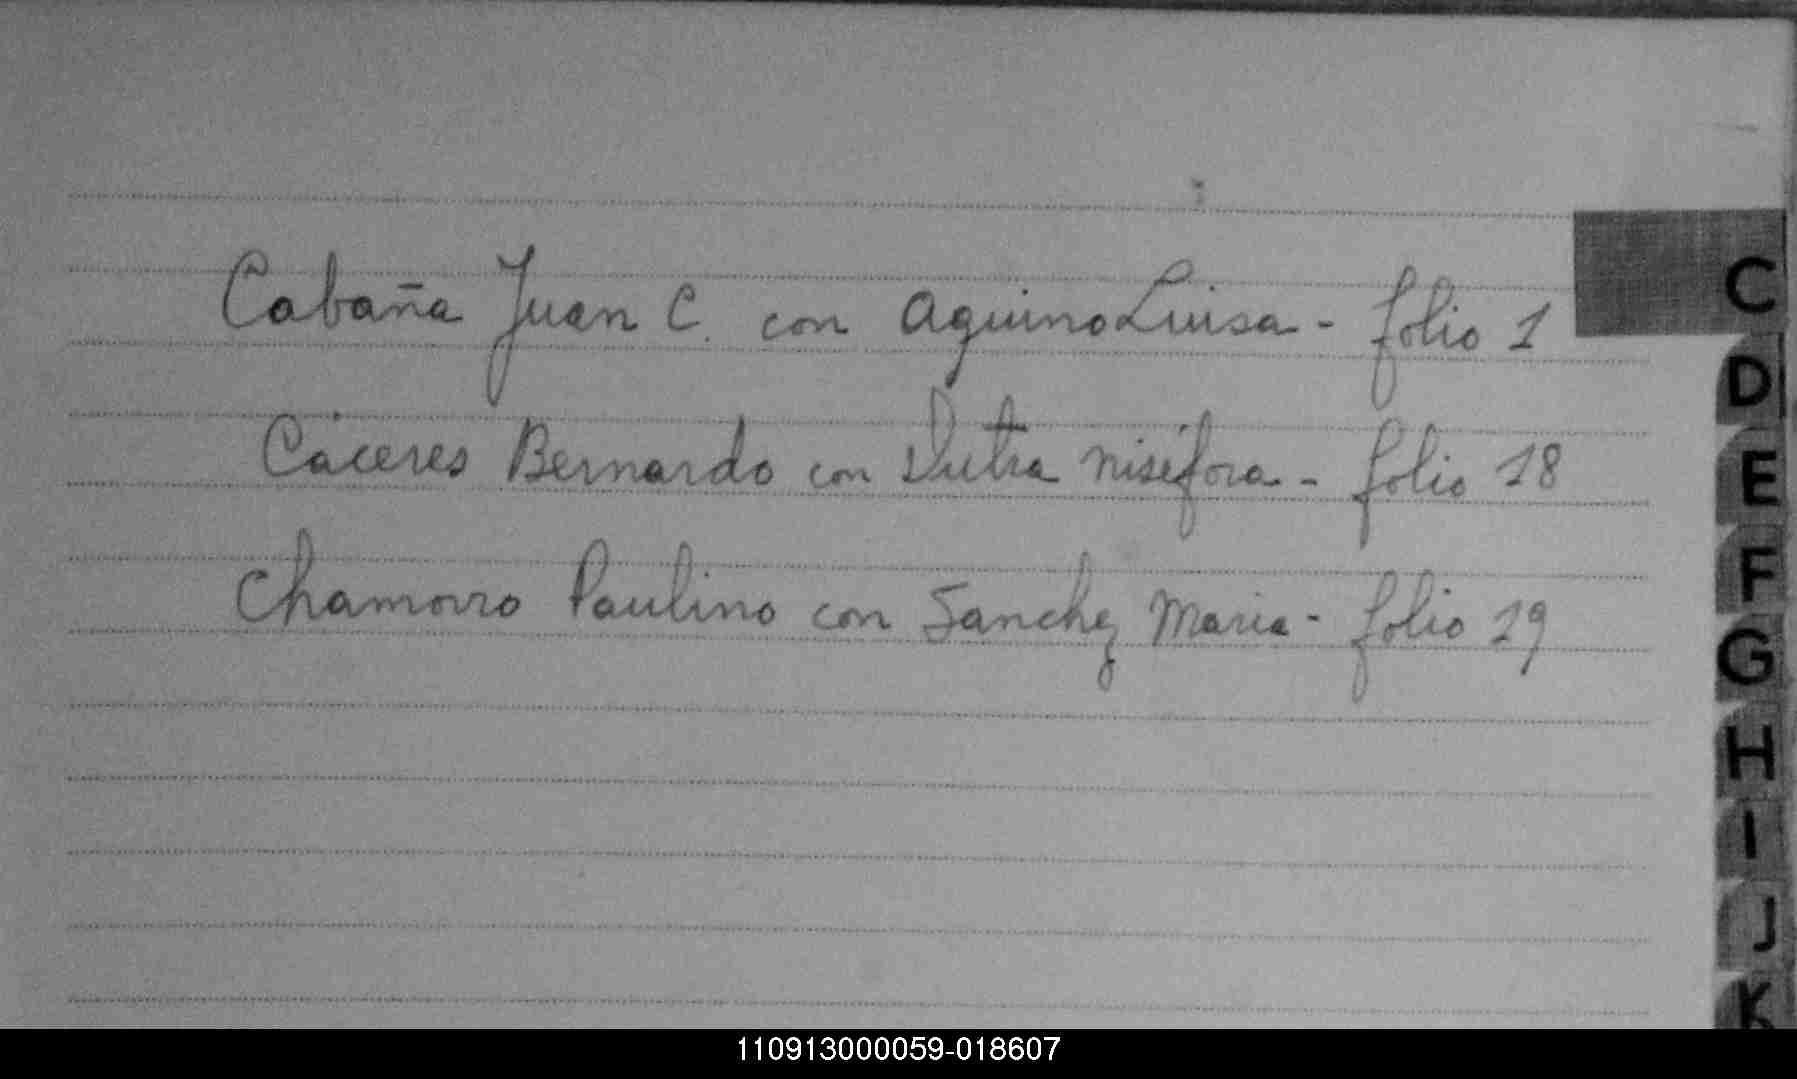 Cabaña Juan C. con Aquino Luisa - folio 1
Cáceres Bernardo con Dutra Niséfora - folio 18
Chamorro Paulino con Sanchez Maria - folio 19
C
D
E
F
G
H
I
J
K
110913000059-018607